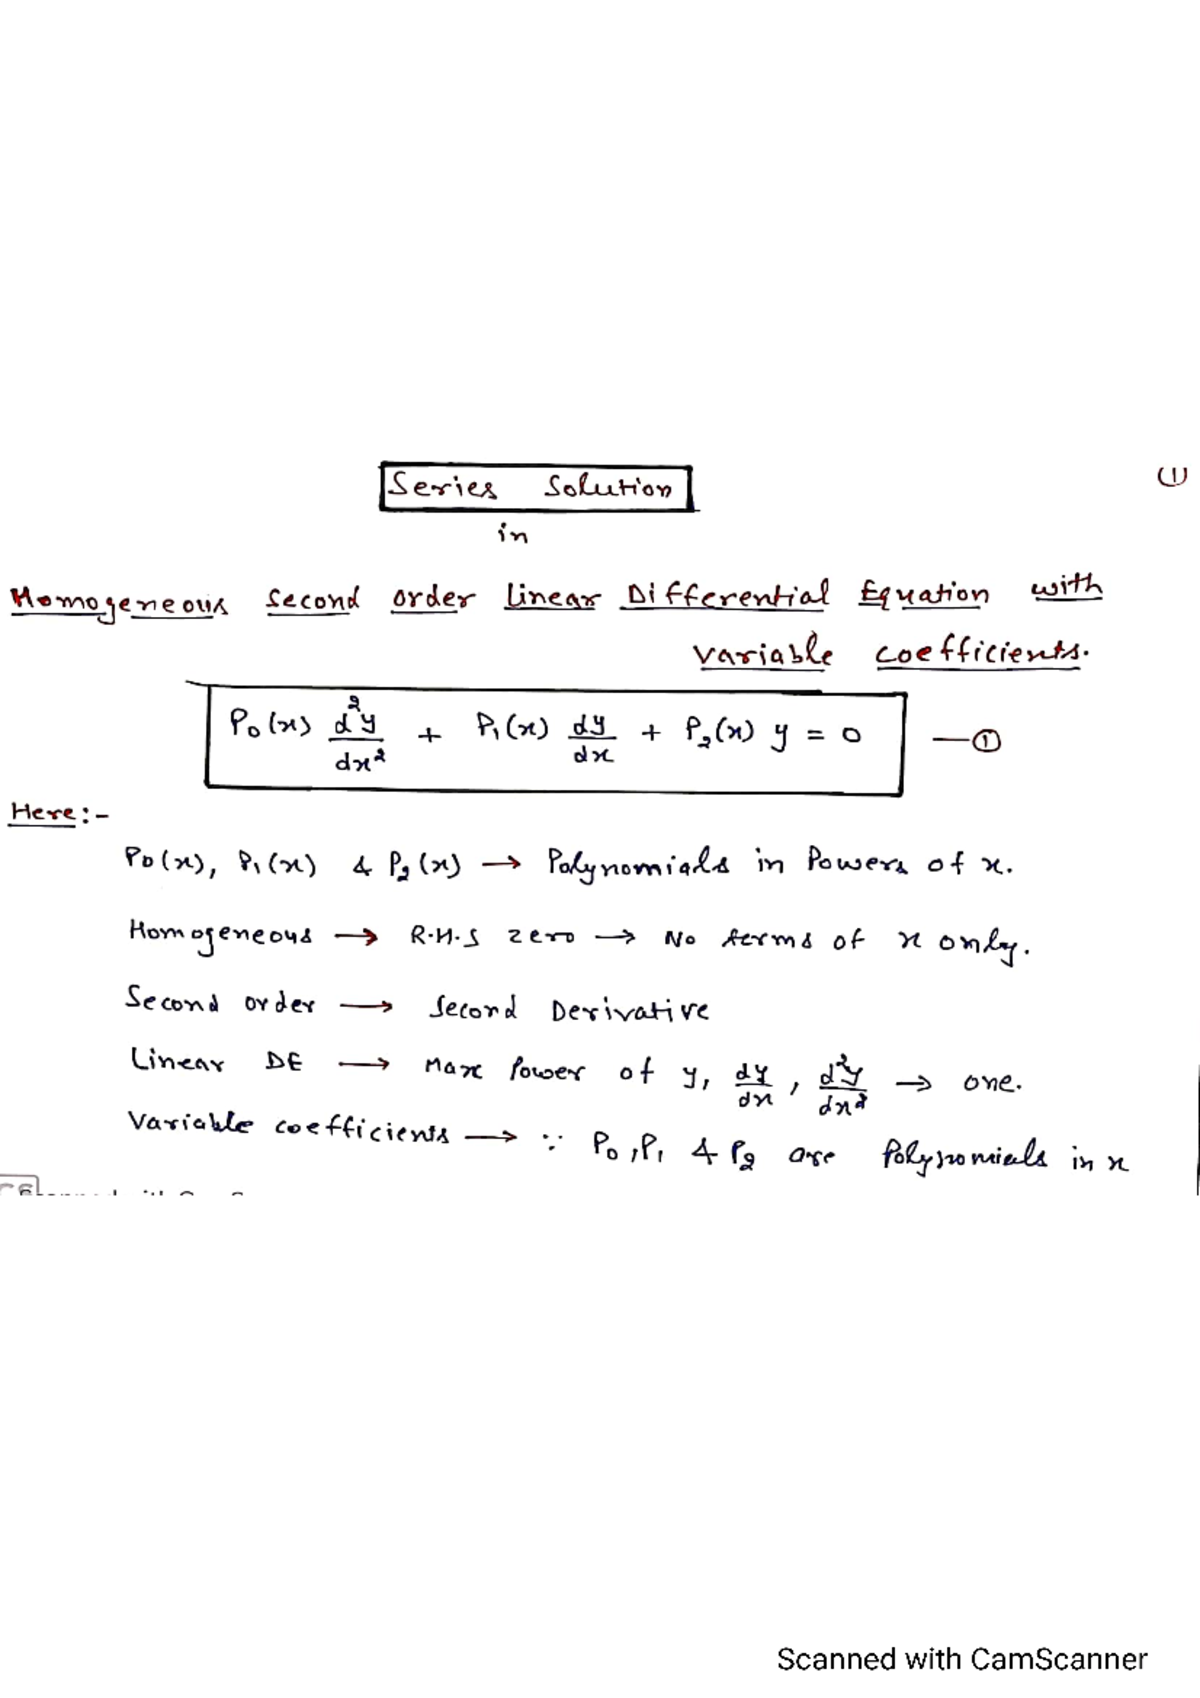 Series Solution
(1)
in
Homogeneous Second order Linear Differential Equation with
variable coefficients.
P₀(x) d²y/dx² + P₁(x) dy/dx + P₂(x) y = 0 —①
Here:-
P₀(x), P₁(x) & P₂(x) → Polynomials in Powers of x.
Homogeneous → R.H.S zero → No terms of x only.
Second order → Second Derivative
Linear DE → Max Power of y, dy/dx, d²y/dx² → one.
Variable coefficients → ∵ P₀, P₁ & P₂ are Polynomials in x
Scanned with CamScanner